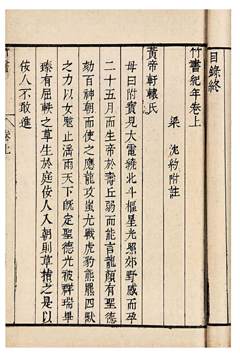 目錄終
竹書紀年卷上
梁 沈約附註
黃帝軒轅氏
母曰附寶見大電繞北斗樞星光照郊野感而孕
二十五月而生帝於壽丘弱而能言龍顏有聖德
劾百神朝而使之應龍攻蚩尤戰虎豹熊羆四獸
之力以女魃止淫雨天下既定聖德光被群瑞畢
臻有屈軼之草生於庭佞人入朝則草指之是以
佞人不敢進
竹書
卷上